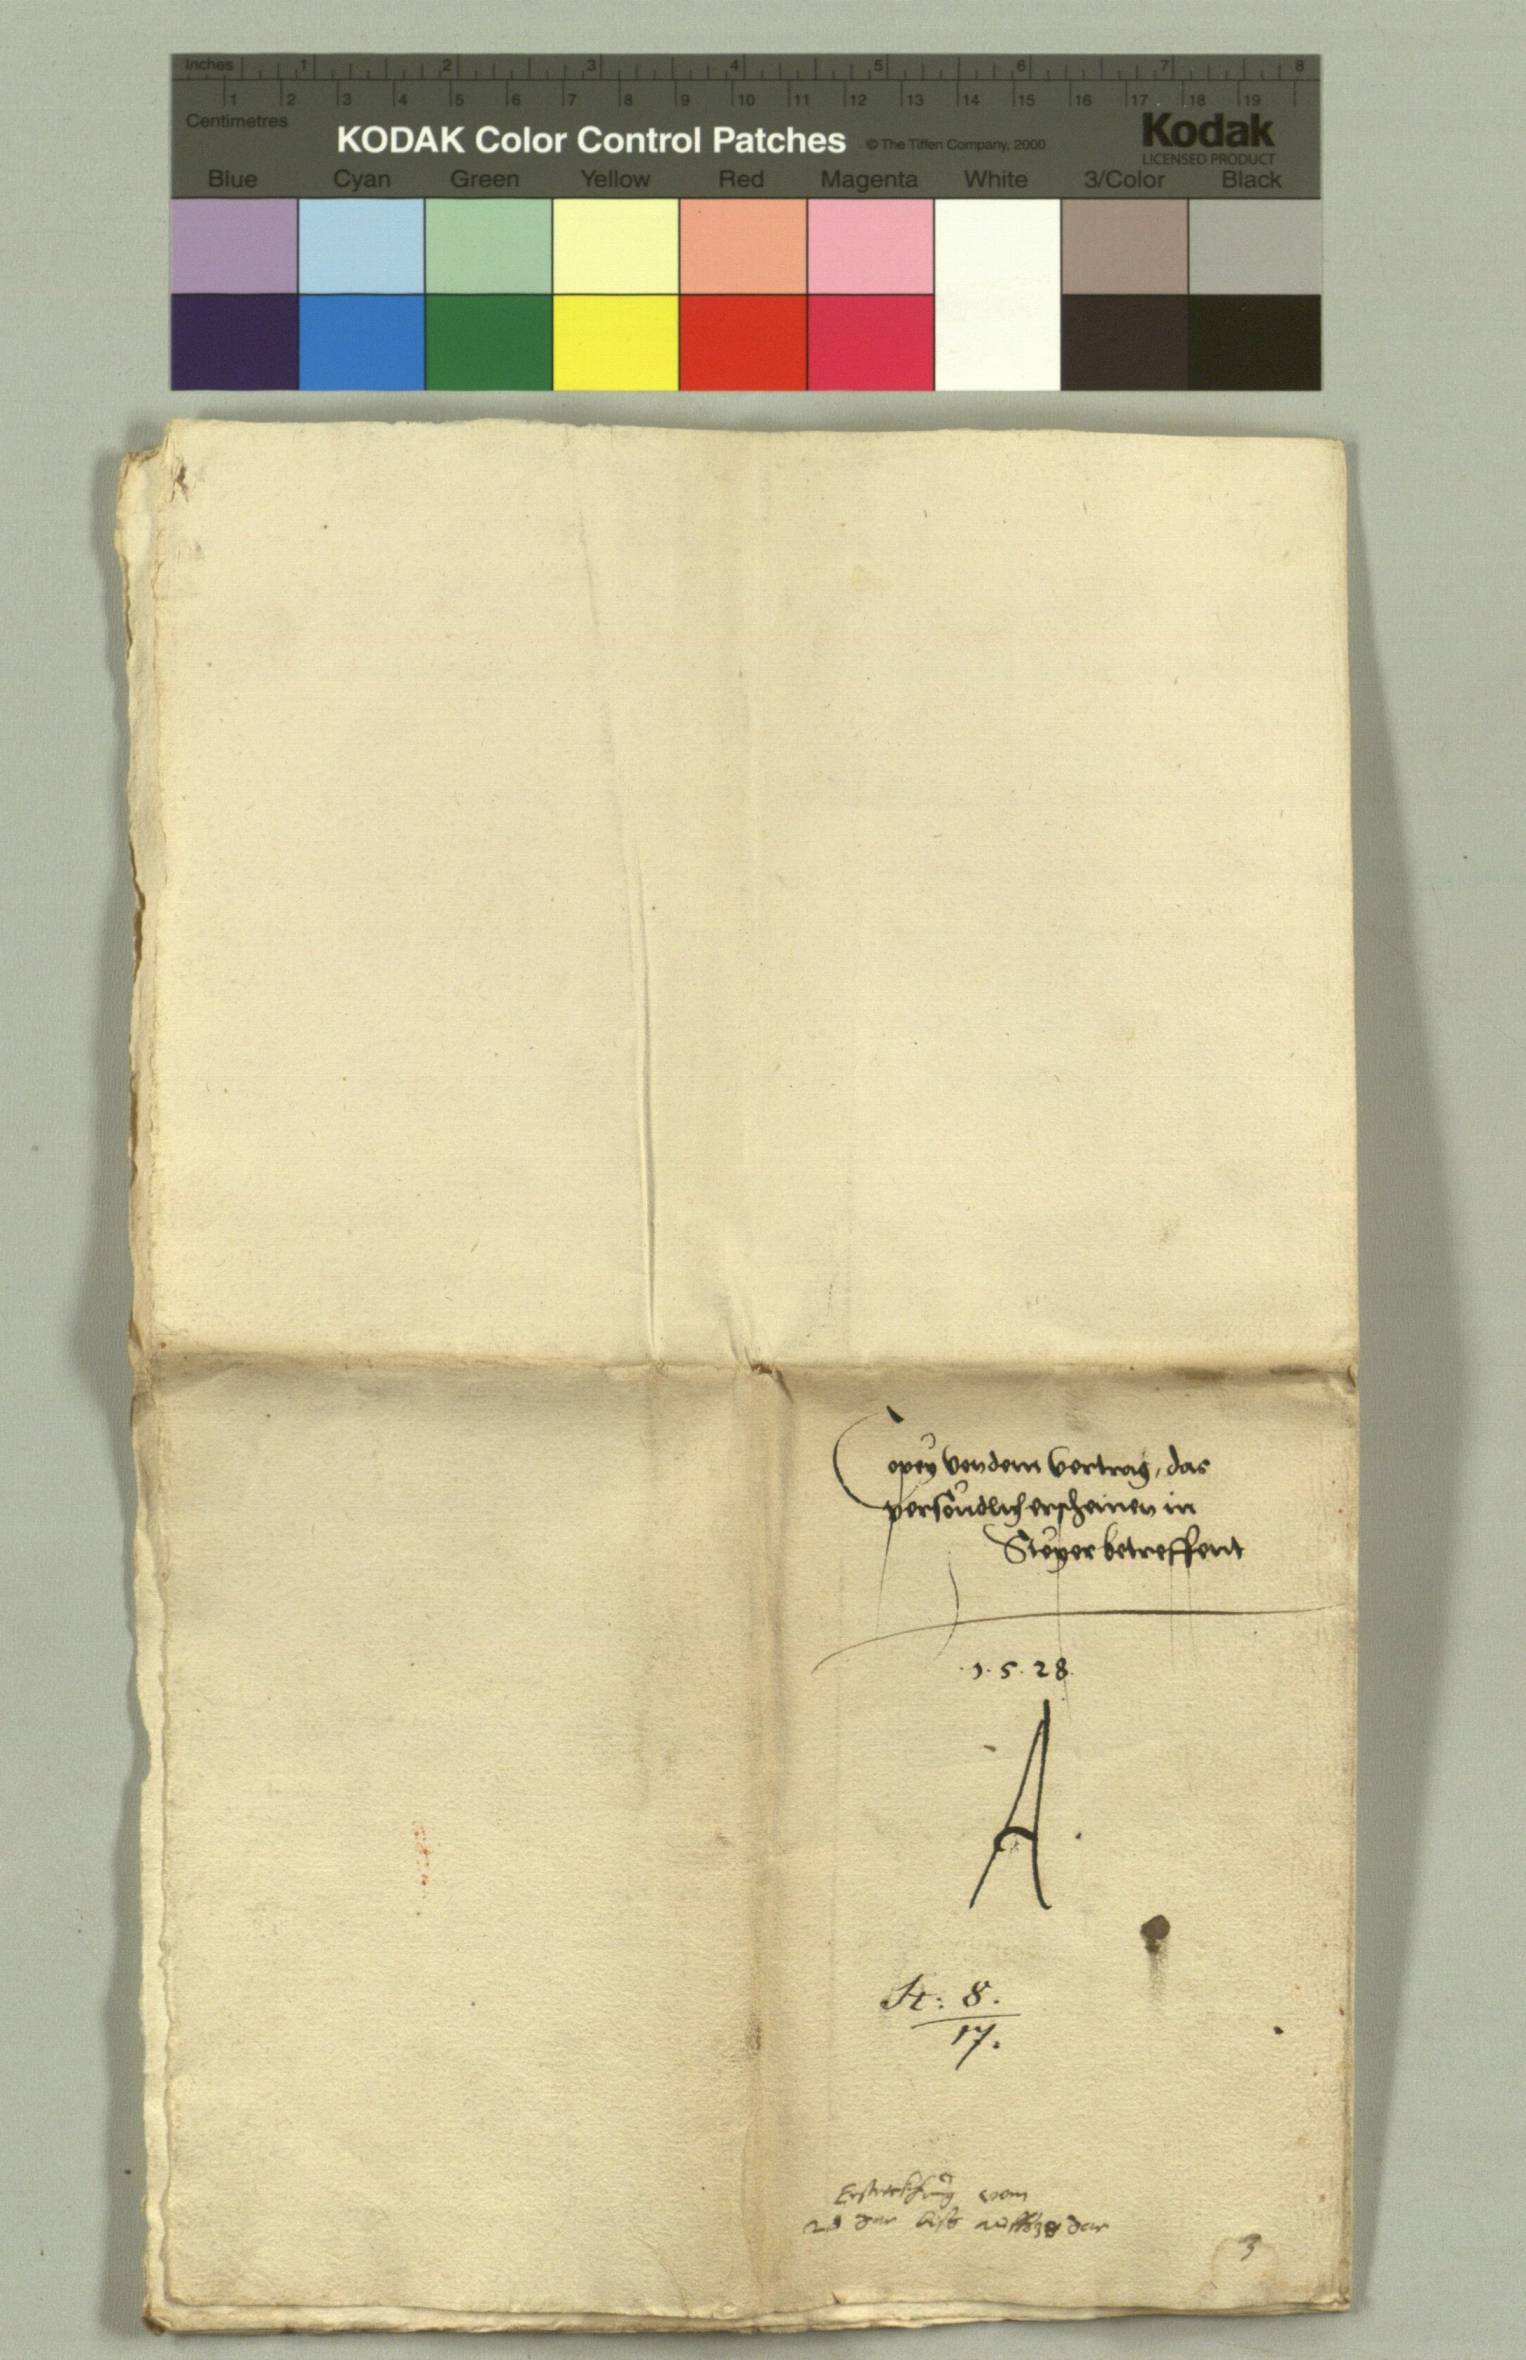 Inches 1 2 3 4 5 6 7 8
1 2 3 4 5 6 7 8 9 10 11 12 13 14 15 16 17 18 19
Centimetres
KODAK Color Control Patches © The Tiffen Company, 2000 Kodak
LICENSED PRODUCT
Blue Cyan Green Yellow Red Magenta White 3/Color Black
Copey von dem vertrag, das
persöndlich erscheinen in
Steyer betreffent
.1.5.28.
A.
St: 8.
17.
Erstreckhung vom
dar bis auff dar
3